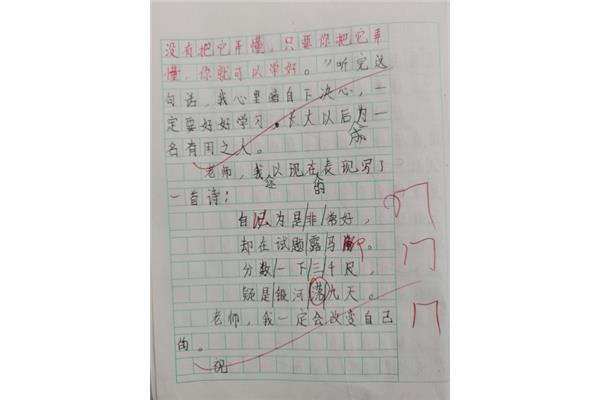 没有把它弄懂，只要你把它弄
懂，你就可以学好。”听完这
句话，我心里暗自下决心，一
定要好好学习，长大以后为一
成
名有用之人。
老师，我以现在表现写了
这 的
一首诗：
自认为是非常好，
却在试题露马脚。
分数一下三千尺，
疑是银河落九天。
老师，我一定会改变自己
的。